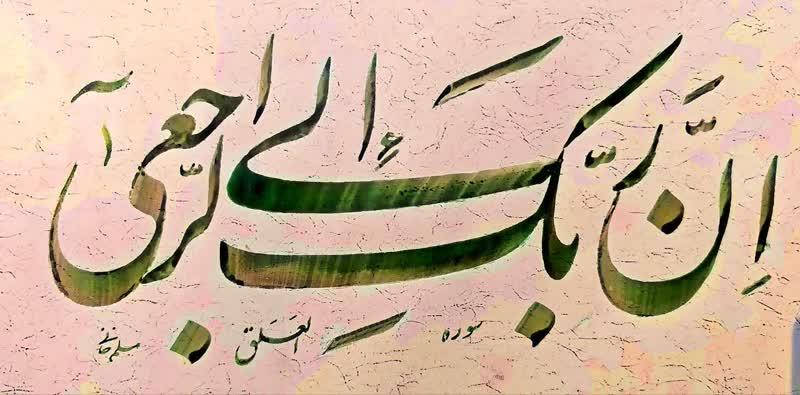 اِنَّ إِلى رَبِّكَ الرُّجعىٰ
سوره العَلَق